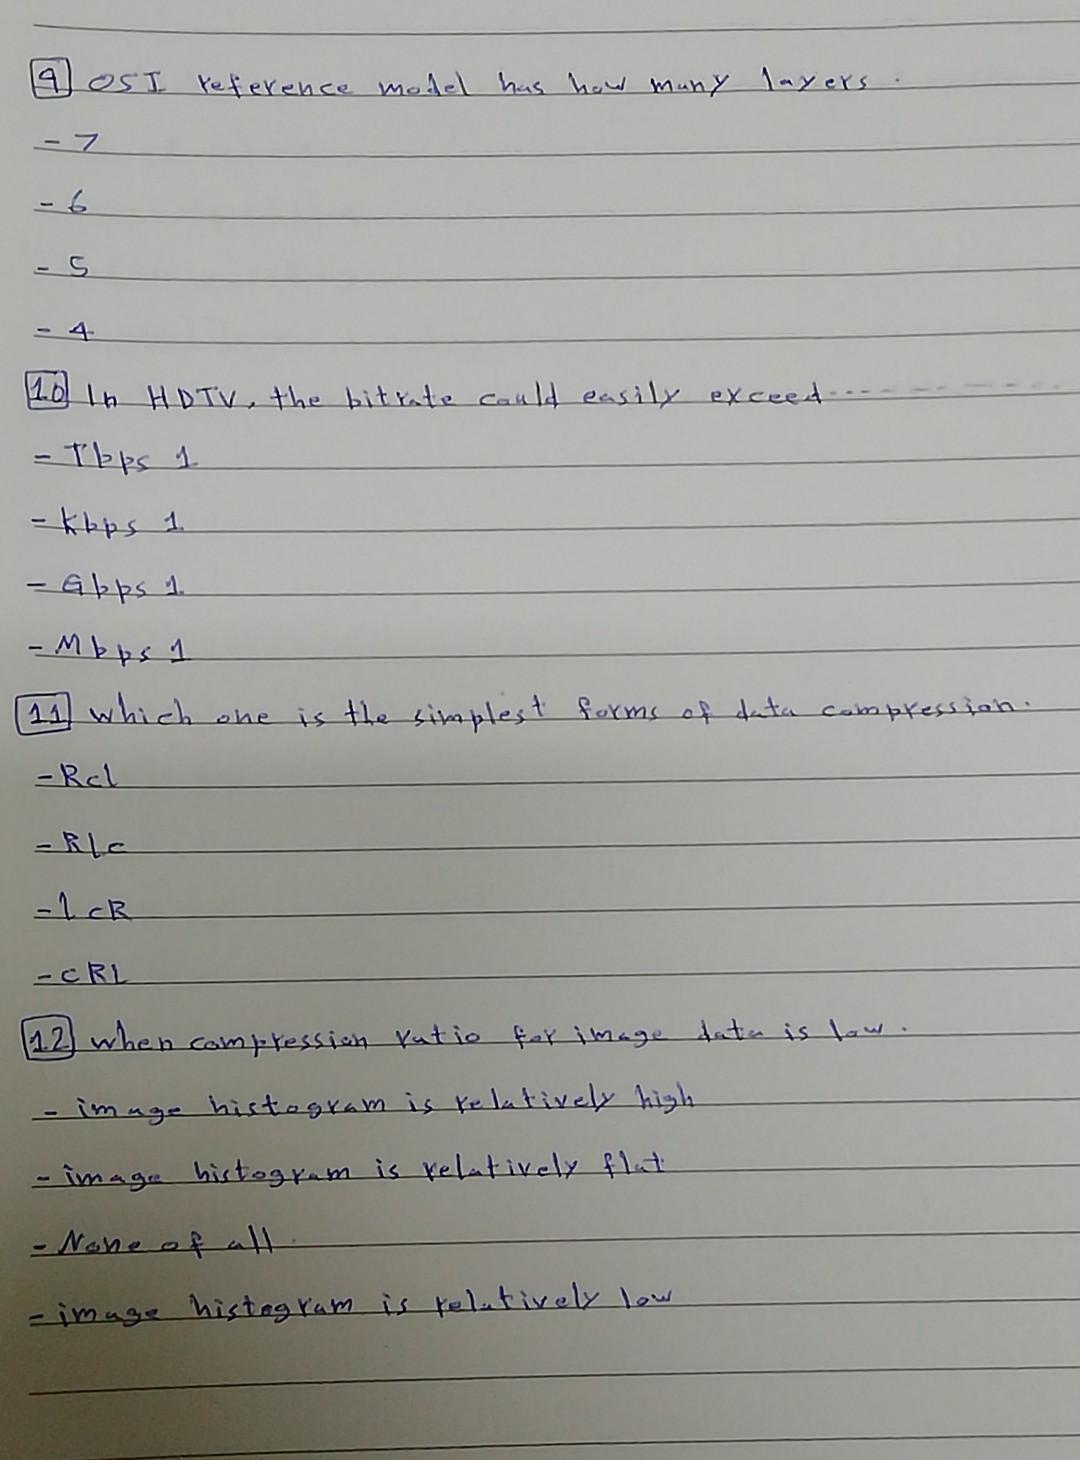 9 OSI reference model has how many layers.
- 7
- 6
- 5
- 4
10 In HDTV, the bitrate could easily exceed-----------
- Tbps 1
- Kbps 1
- Gbps 1
- Mbps 1
11 which one is the simplest forms of data compression.
- Rcl
- Rlc
- lcR
- cRL
12 when compression ratio for image data is low.
- image histogram is relatively high
- image histogram is relatively flat
- None of all.
- image histogram is relatively low